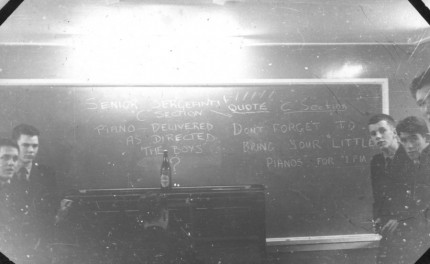 SENIOR SERGEANTS
"C" SECTION
PIANO - DELIVERED
AS DIRECTED
"THE BOYS"
?
QUOTE "C" Section
DON'T FORGET TO
BRING YOUR "LITTLE
PIANOS" FOR